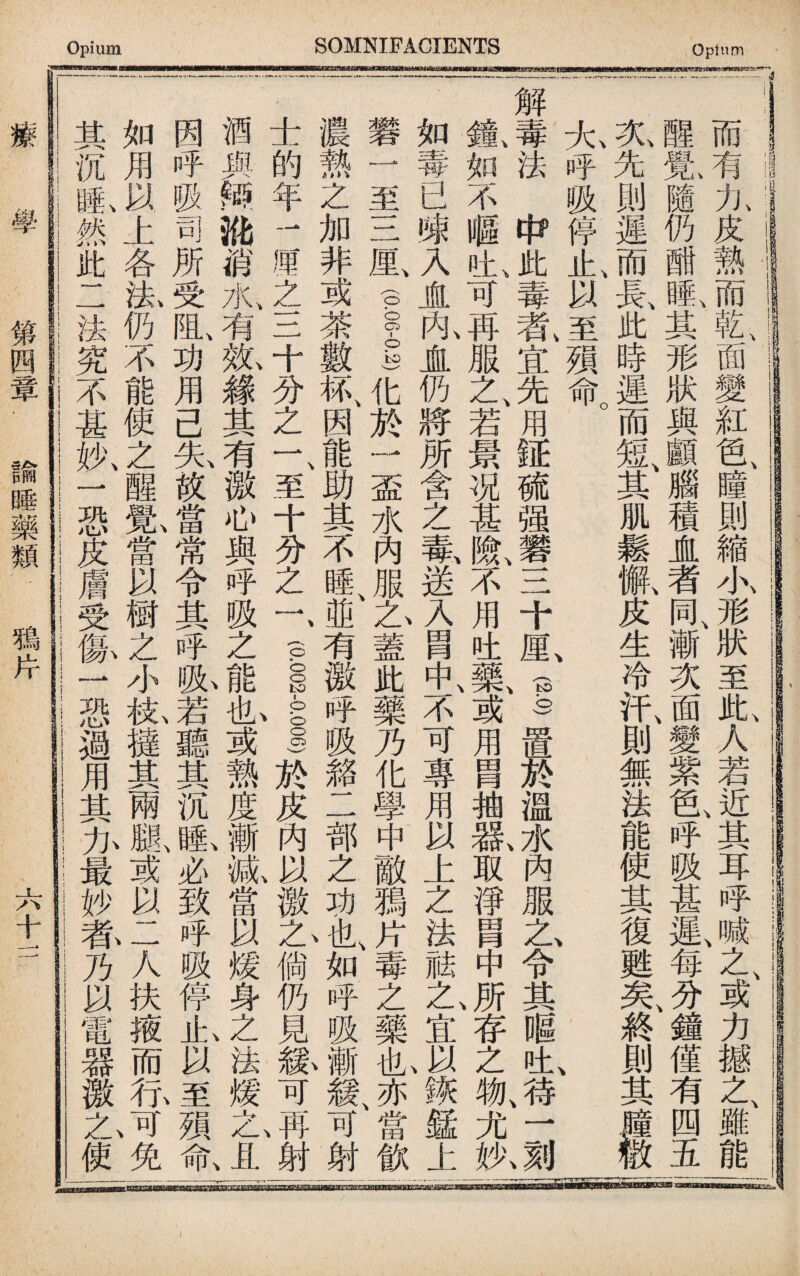 Opium
SOMNIFACIENTS
Opium
而有力、皮熱而乾、面變紅色、瞳則縮小、形狀至此、人若近其耳呼喊之、或力撼之、雖能
醒覺、隨仍酣睡、其形狀與顱腦積血者同、漸次面變紫色、呼吸甚遲、每分鐘僅有四五
次、先則遲而長、此時遲而短、其肌鬆懈、皮生冷汗、則無法能使其復甦矣、終則其瞳散
大、呼吸停止、以至殞命。
解毒法 中此毒者、宜先用鉦硫强礬三十厘、(2.0)置於溫水內服之、令其嘔吐、待一刻
鐘、如不嘔吐、可再服之、若景況甚險、不用吐藥、或用胃抽器、取淨胃中所存之物、尤妙、
如毒已㗢入血內、血仍將所含之毒、送入胃中、不可專用以上之法祛之、宜以鋏錳上
礬一至三厘、(0.06-0.2)化於一盃水內服之、蓋此藥乃化學中敵鴉片毒之藥也、亦當飲
濃熱之加非或茶數杯、因能助其不睡、並有激呼吸絡二部之功也、如呼吸漸緩、可射
士的年一厘之三十分之一、至十分之一、(0.002-0.006)於皮內以激之、倘仍見緩、可再射
酒與消水、有效、緣其有激心與呼吸之能也、或熱度漸減、當以煖身之法煖之、且
因呼吸司所受阻、功用已失、故當常令其呼吸、若聽其沉睡、必致呼吸停止、以至殞命、
如用以上各法、仍不能使之醒覺、當以樹之小枝、撻其兩腿、或以二人扶掖而行、可免
其沉睡、然此二法究不甚妙、一恐皮膚受傷、一恐過用其力、最妙者、乃以電器激之、使
療學 第四章 論睡藥類 鴉片 六十二